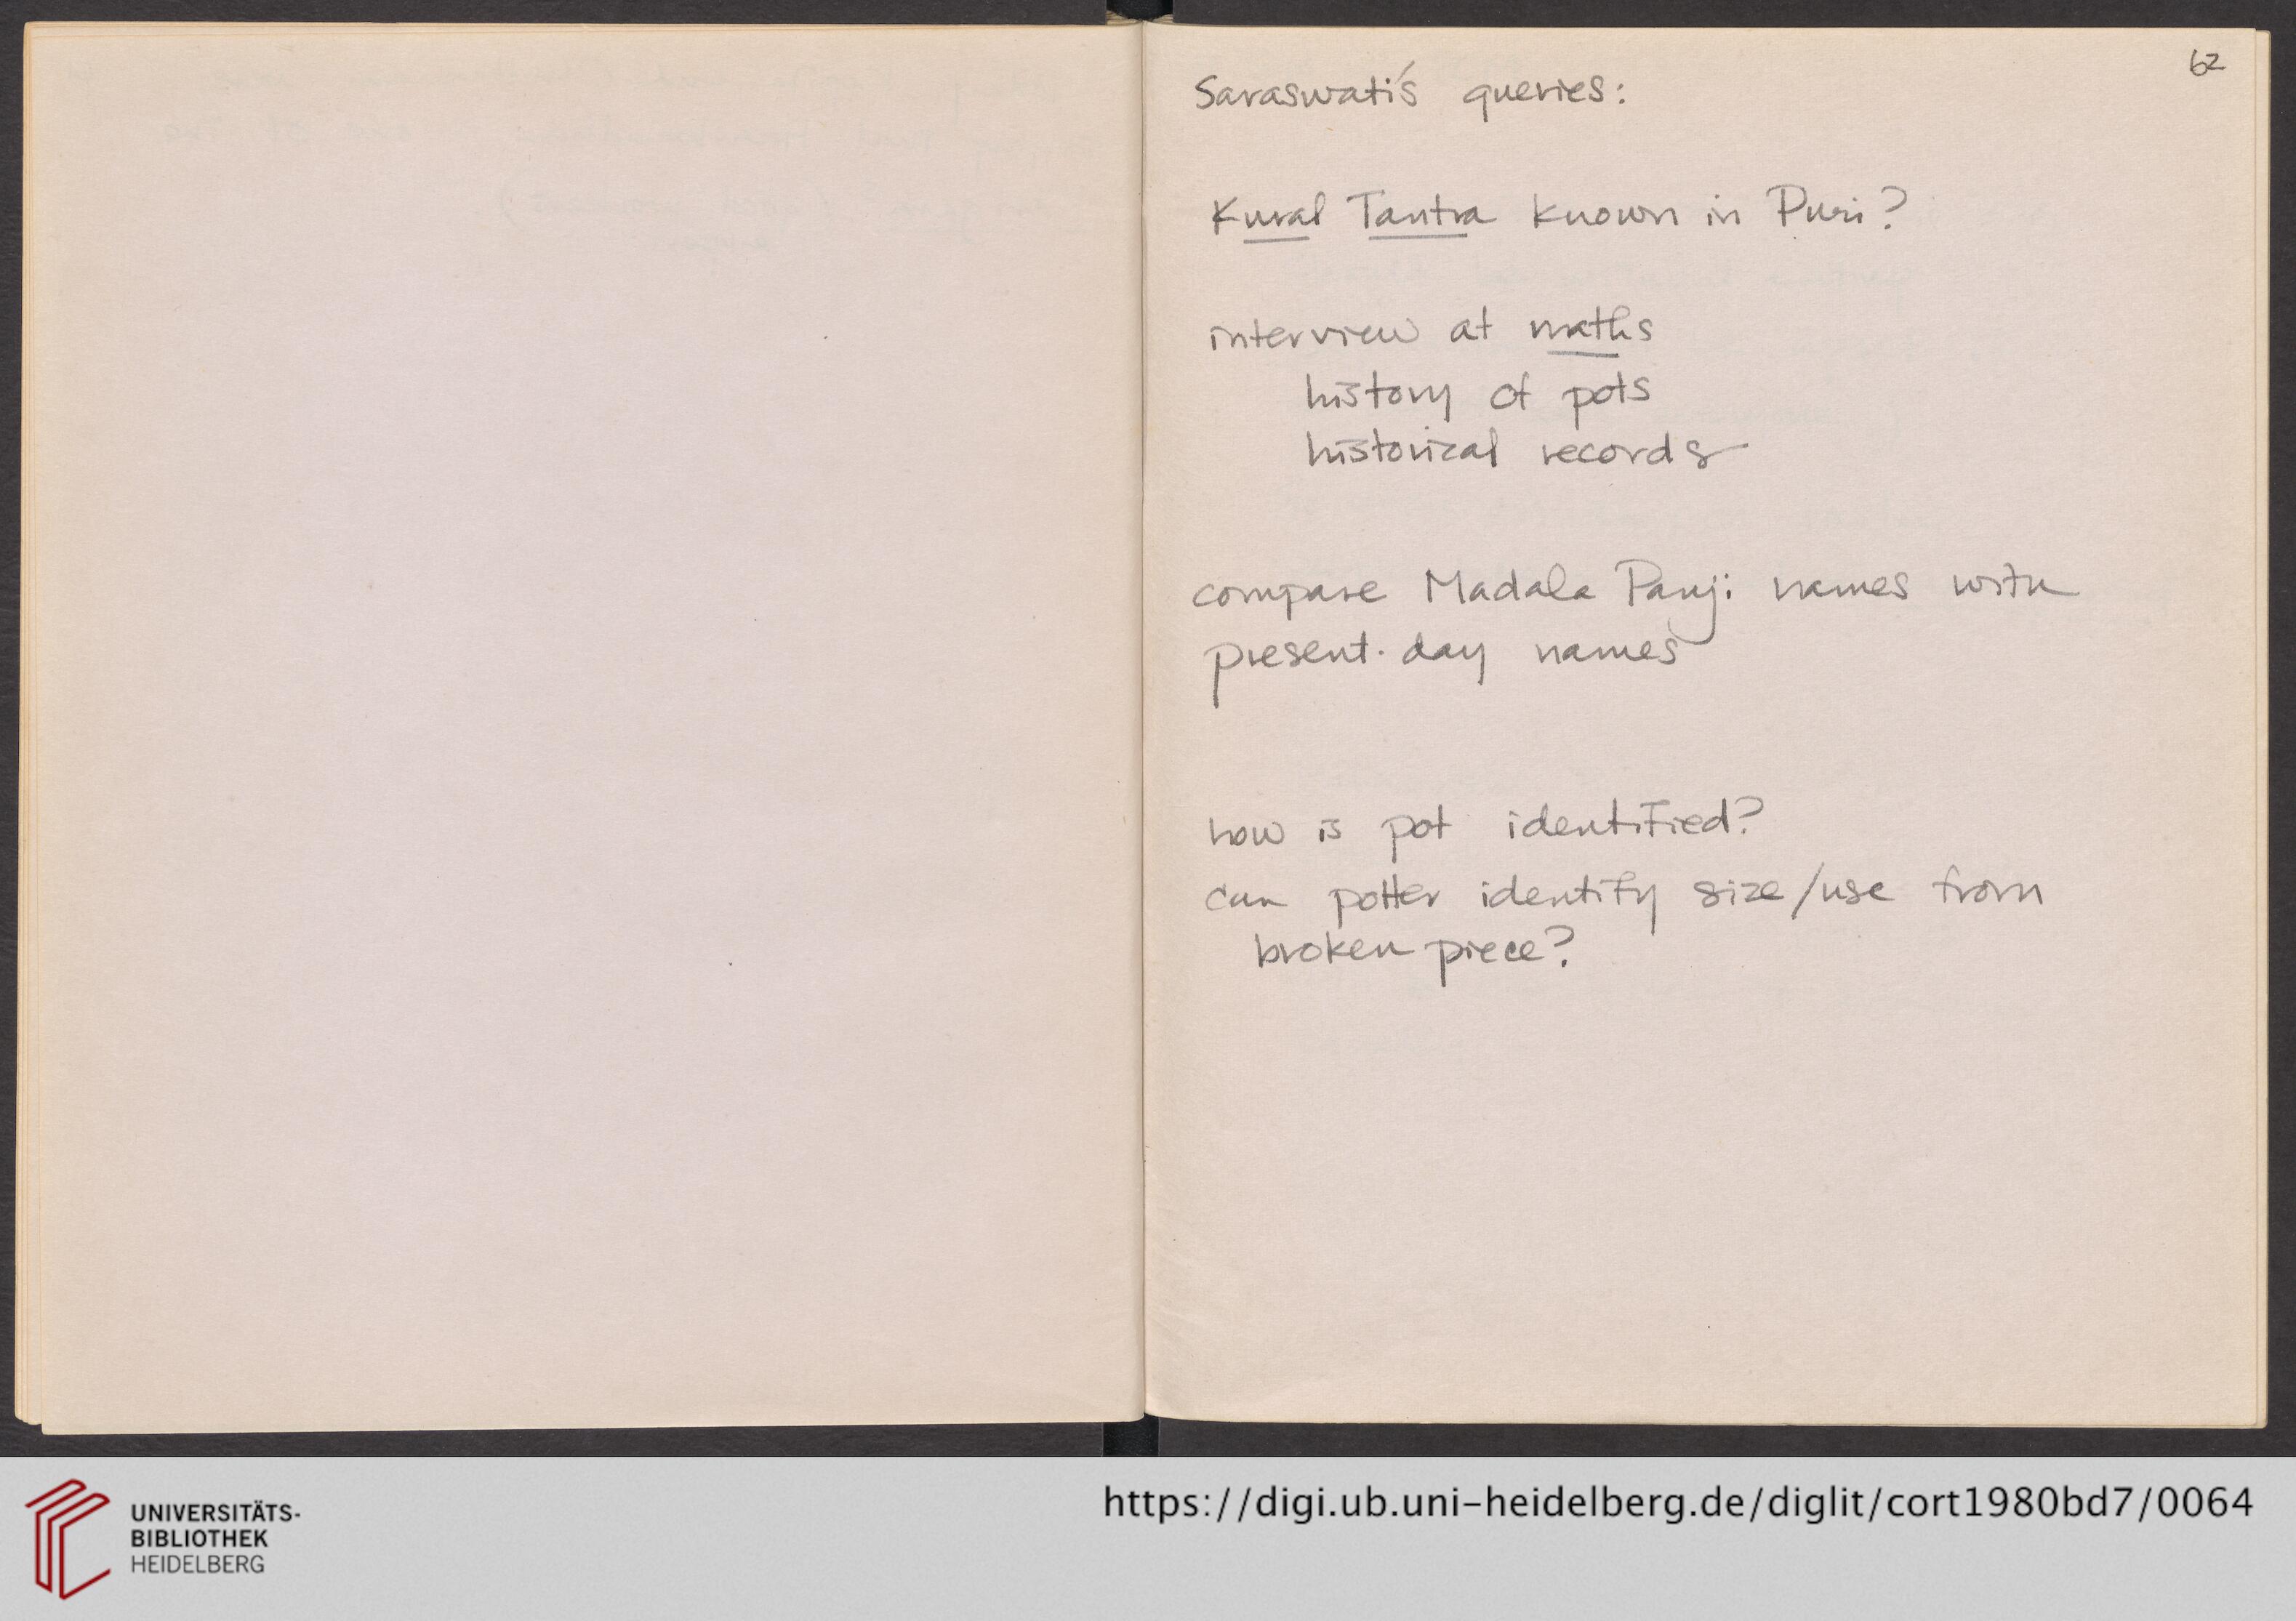 62
Saraswati's queries:
Kural Tantra known in Puri?
interview at maths
history of pots
historical records
compare Madala Panji names with
present-day names
how is pot identified?
can potter identify size/use from
broken piece?
UNIVERSITÄTS-
BIBLIOTHEK
HEIDELBERG
https://digi.ub.uni-heidelberg.de/diglit/cort1980bd7/0064